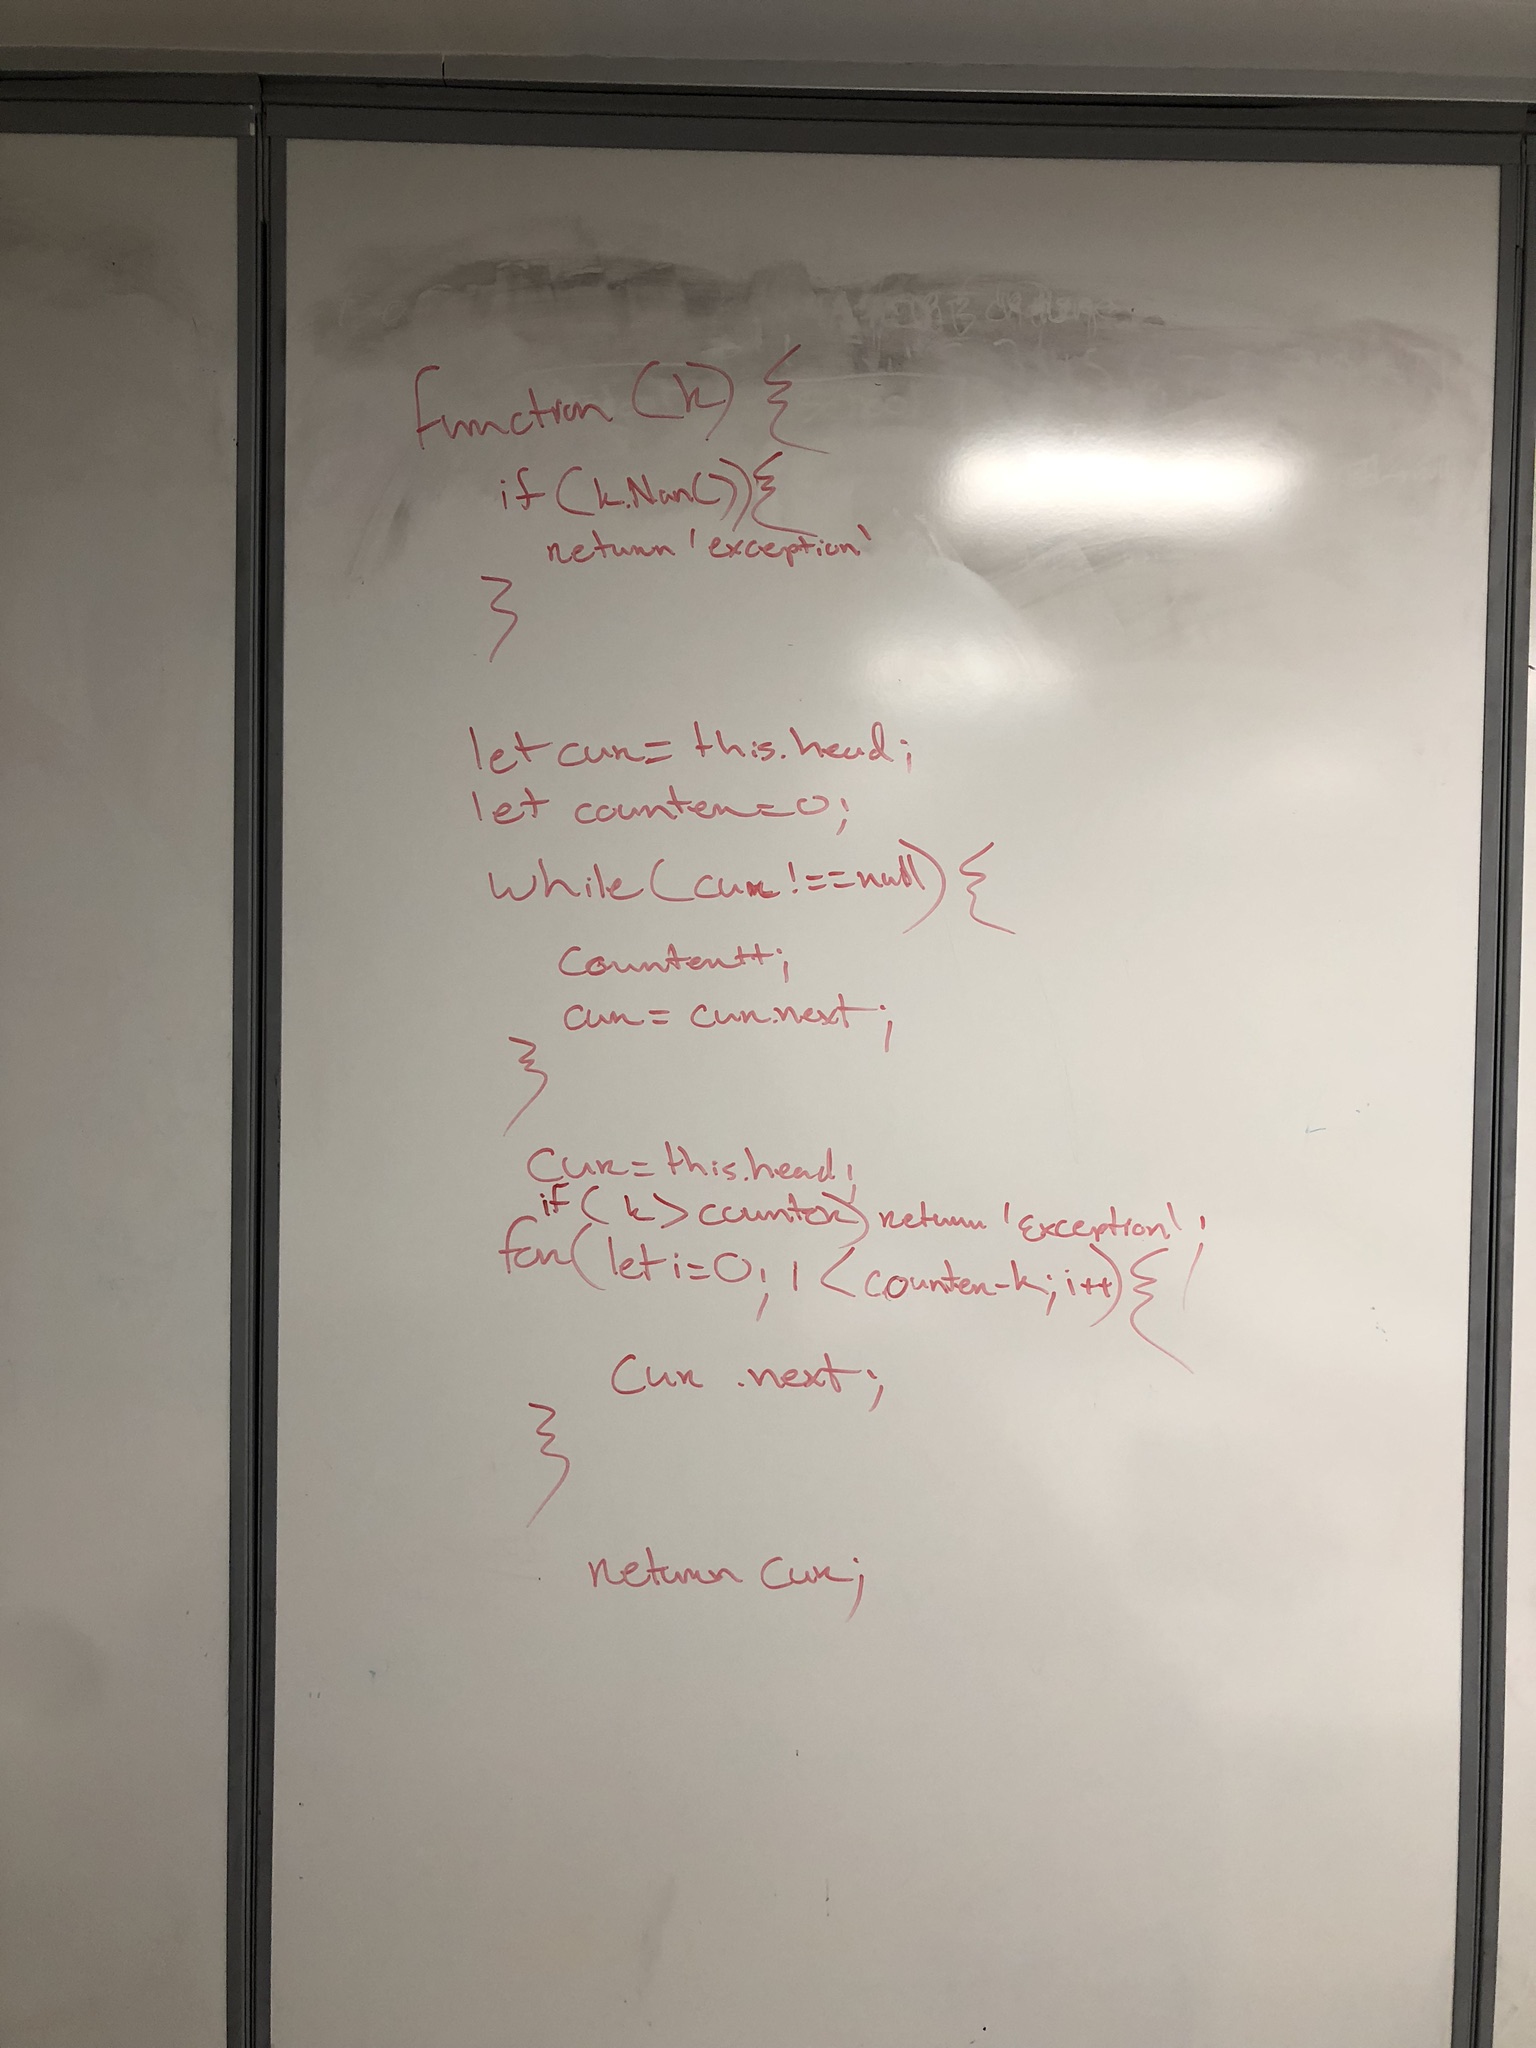 function (k) {
if (k.Nan()){
return 'exception'
}
let cur = this.head;
let counter = 0;
while (cur !== null) {
Counter++;
cur = cur.next;
}
Cur = this.head;
if (k > counter) return 'Exception';
for (let i=0; i < counter-k; i++) {
Cur .next;
}
return Cur;